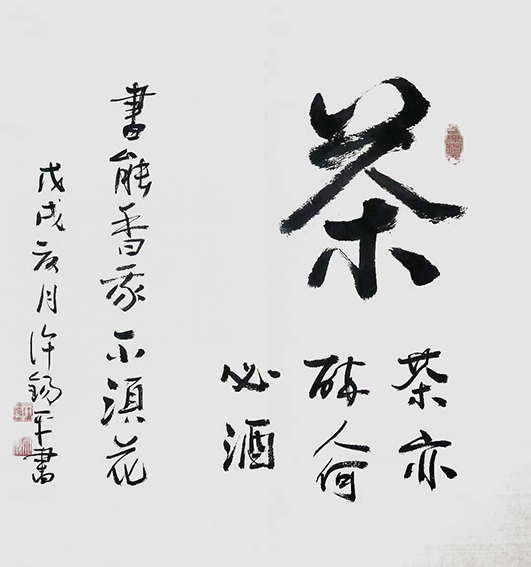 茶
茶亦
醉人何
必酒
書能香我不須花
戊戌夏月许锡平書